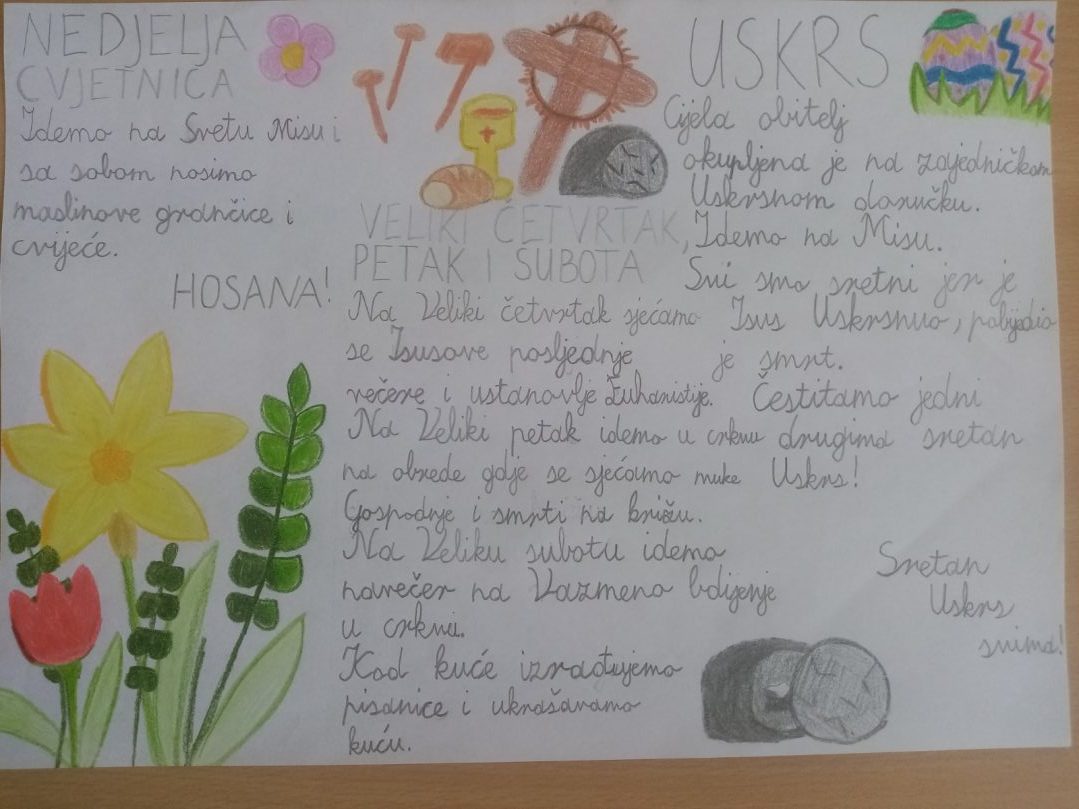 NEDJELJA
CVJETNICA
Idemo na Svetu Misu i
sa sobom nosimo
maslinove grančice i
cvijeće.
HOSANA!
VELIKI ČETVRTAK,
PETAK I SUBOTA
Na Veliki četvrtak sjećamo
se Isusove posljednje
večere i ustanovlje Euharistije.
Na Veliki petak idemo u crkvu
na obrede gdje se sjećamo muke
Gospodnje i smrti na križu.
Na Veliku subotu idemo
navečer na Vazmeno bdijenje
u crkvu.
Kod kuće izrađujemo
pisanice i ukrašavamo
kuću.
USKRS
Cijela obitelj
okupljena je na zajedničkom
Uskrsnom doručku.
Idemo na Misu.
Svi smo sretni jer je
Isus Uskrsnuo, pobijedio
je smrt.
Čestitamo jedni
drugima sretan
Uskrs!
Sretan
Uskrs
svima!